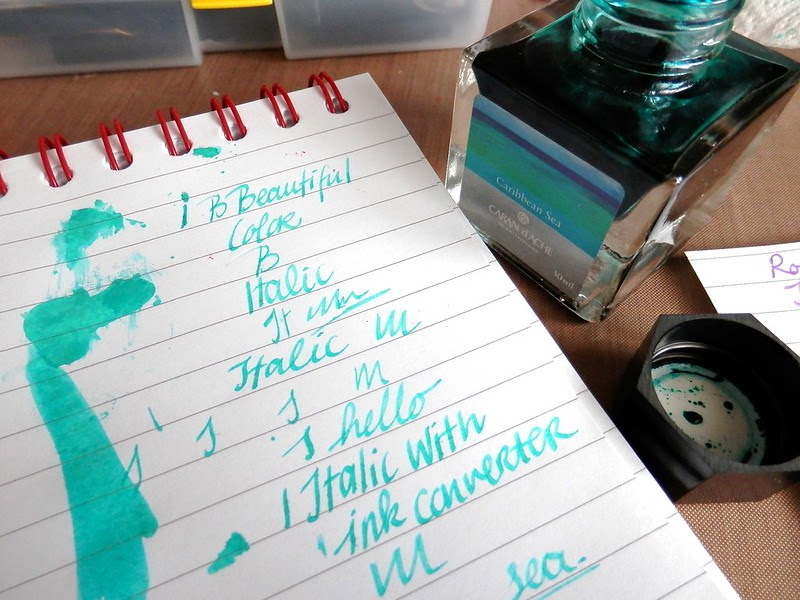 i B Beautiful
Color
B
Italic
It
Italic m
m
hello
I Italic With
ink converter
m
sea.
Caribbean Sea
CARAN d'ACHE
Ro